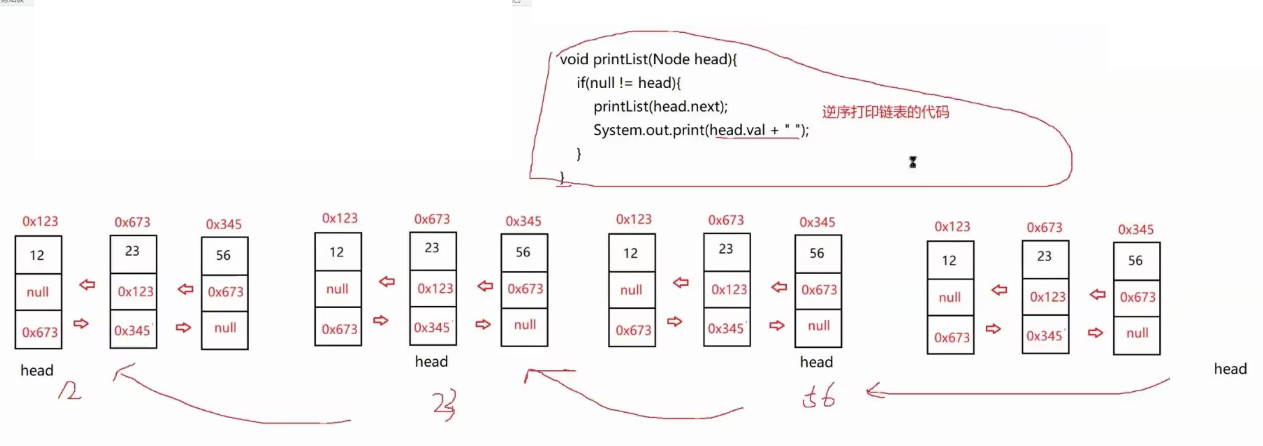 void printList(Node head){
if(null != head){
printList(head.next);
System.out.print(head.val + " ");
}
}
逆序打印链表的代码
0x123 0x673 0x345
12 23 56
null 0x123 0x673
0x673 0x345 null
head
12
0x123 0x673 0x345
12 23 56
null 0x123 0x673
0x673 0x345 null
head
23
0x123 0x673 0x345
12 23 56
null 0x123 0x673
0x673 0x345 null
head
56
0x123 0x673 0x345
12 23 56
null 0x123 0x673
0x673 0x345 null
head